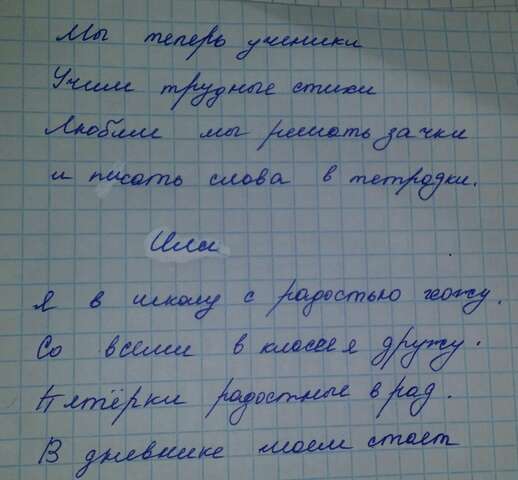 Мы теперь ученики
Учим трудные стихи
Любим мы решать зачки
и писать слова в тетрадки.
Или
Я в школу с радостью хожу.
Со всеми в классе я дружу.
Пятёрки радостные в ряд.
В дневнике моем стоят